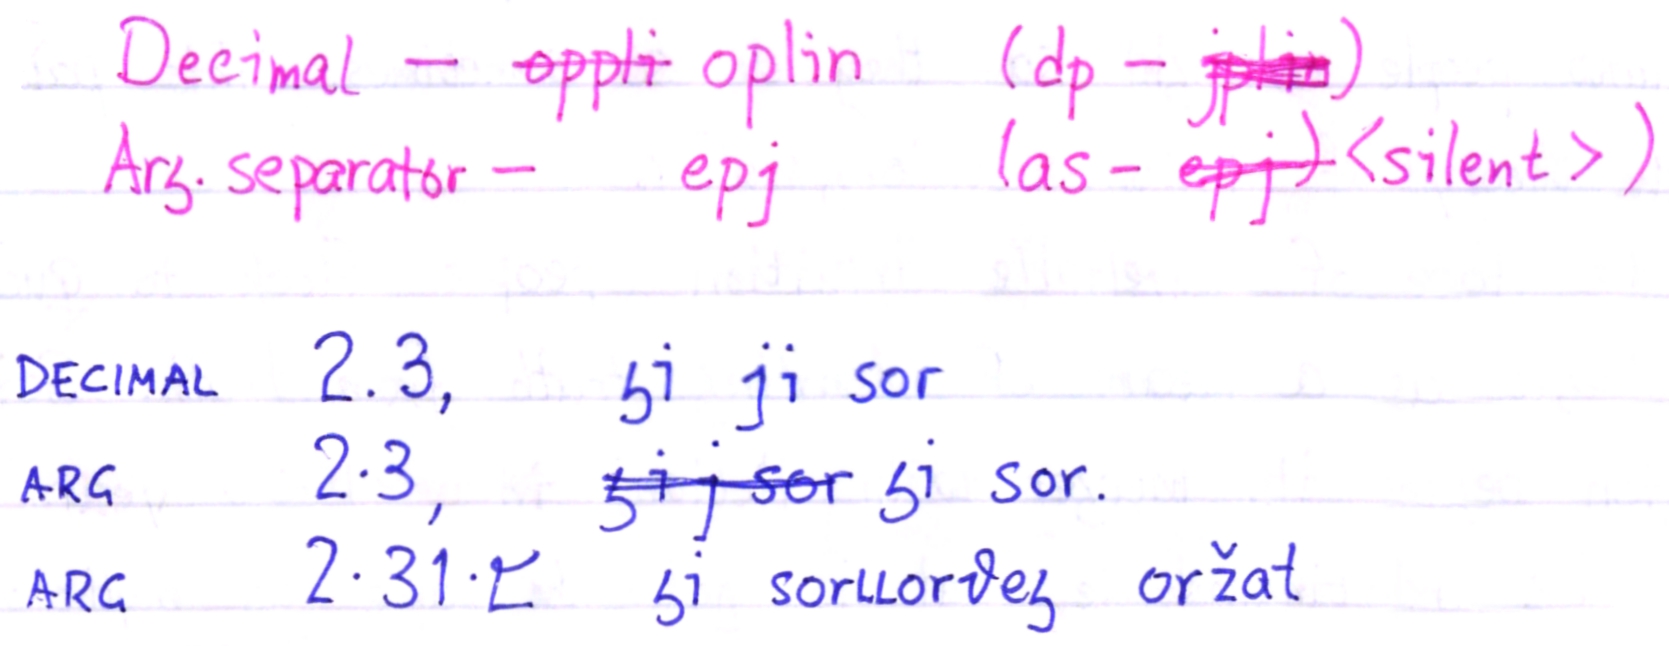 Decimal — oppli oplin (dp — jplin)
Arg. separator — epj (as — epj) <silent>)
DECIMAL 2.3, ꜧi ji sor
ARG 2·3, sor ꜧi sor.
ARG 2·31· ꜧi oržat